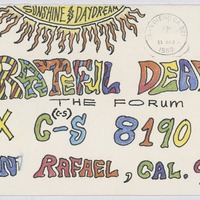 SUNSHINE & DAYDREAM
RATEFUL DEAD
THE FORUM
X C-S 8190
(C-S)
N RAFAEL, CAL. 9